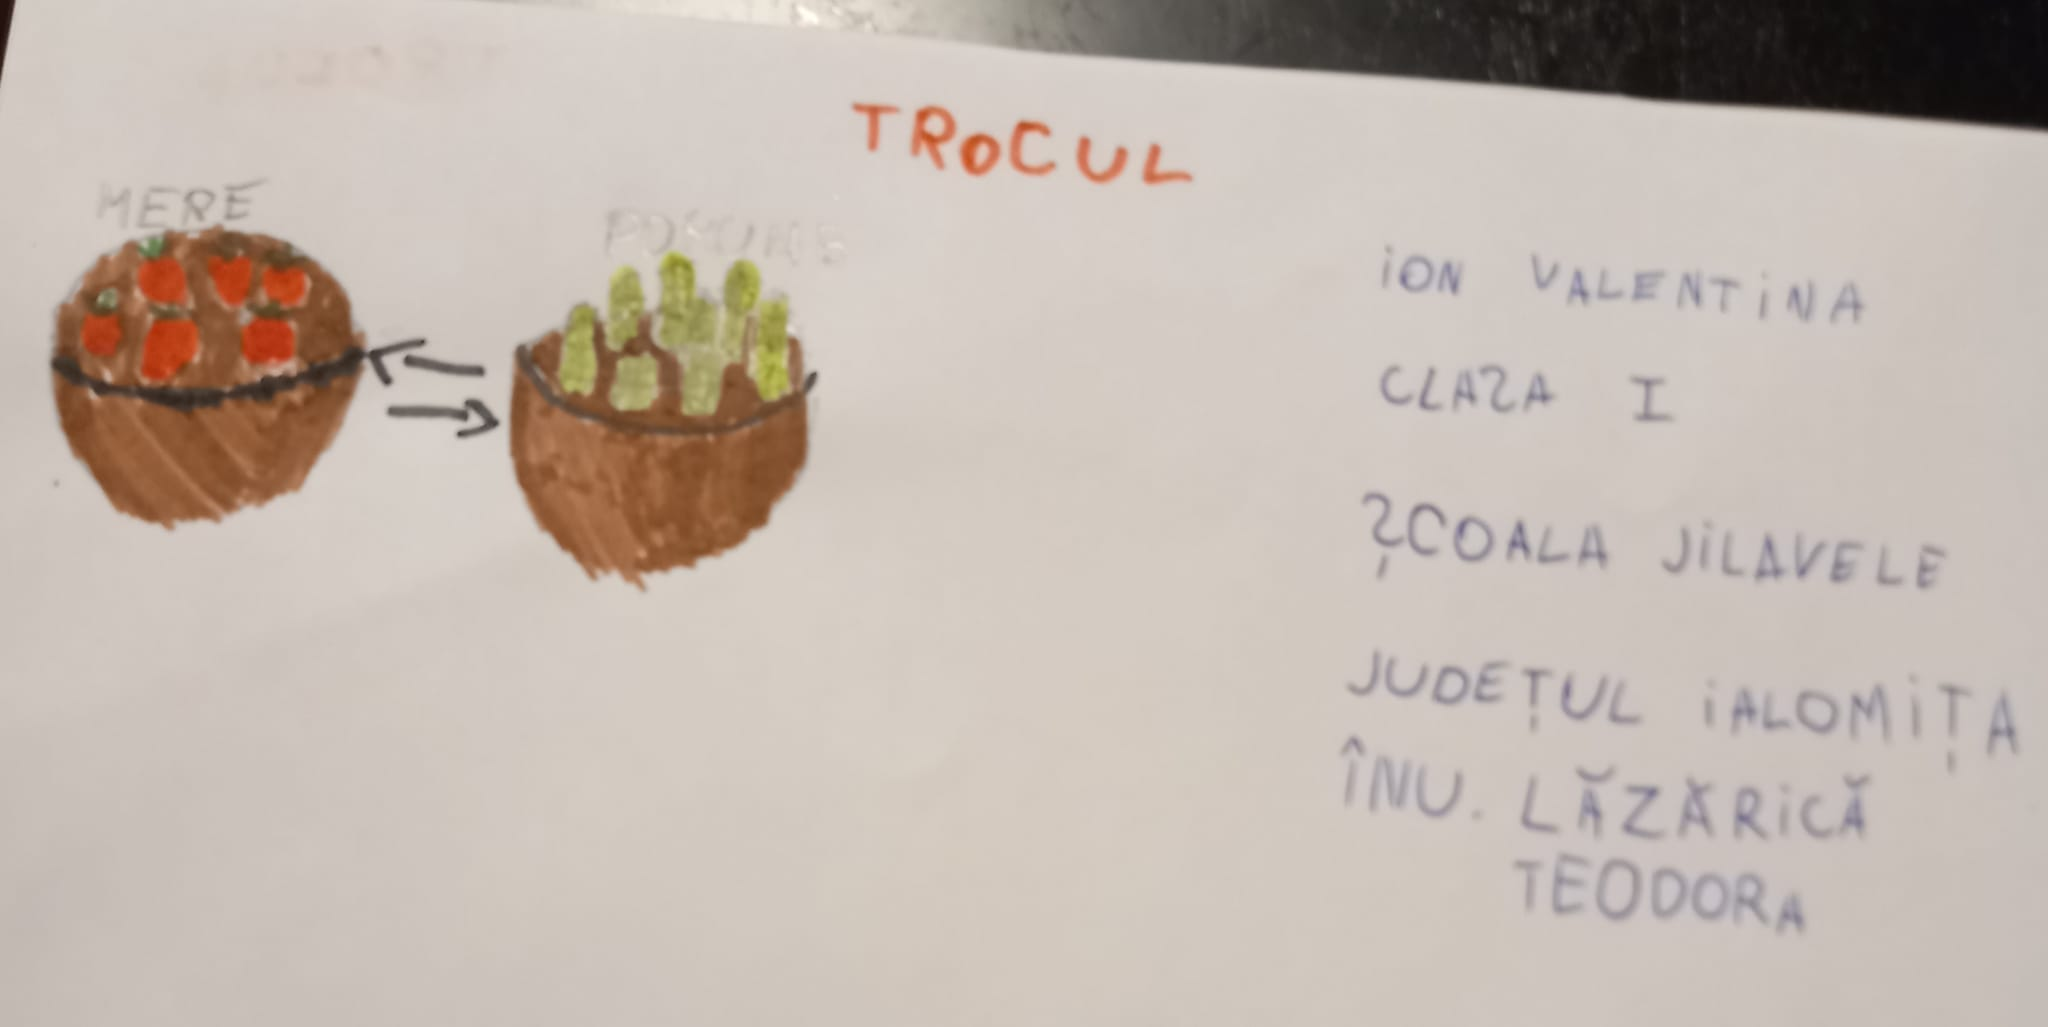 TROCUL
MERE
ION VALENTINA
CLASA I
ȘCOALA JILAVELE
JUDEȚUL IALOMIȚA
ÎNU. LĂZĂRICĂ
TEODORA